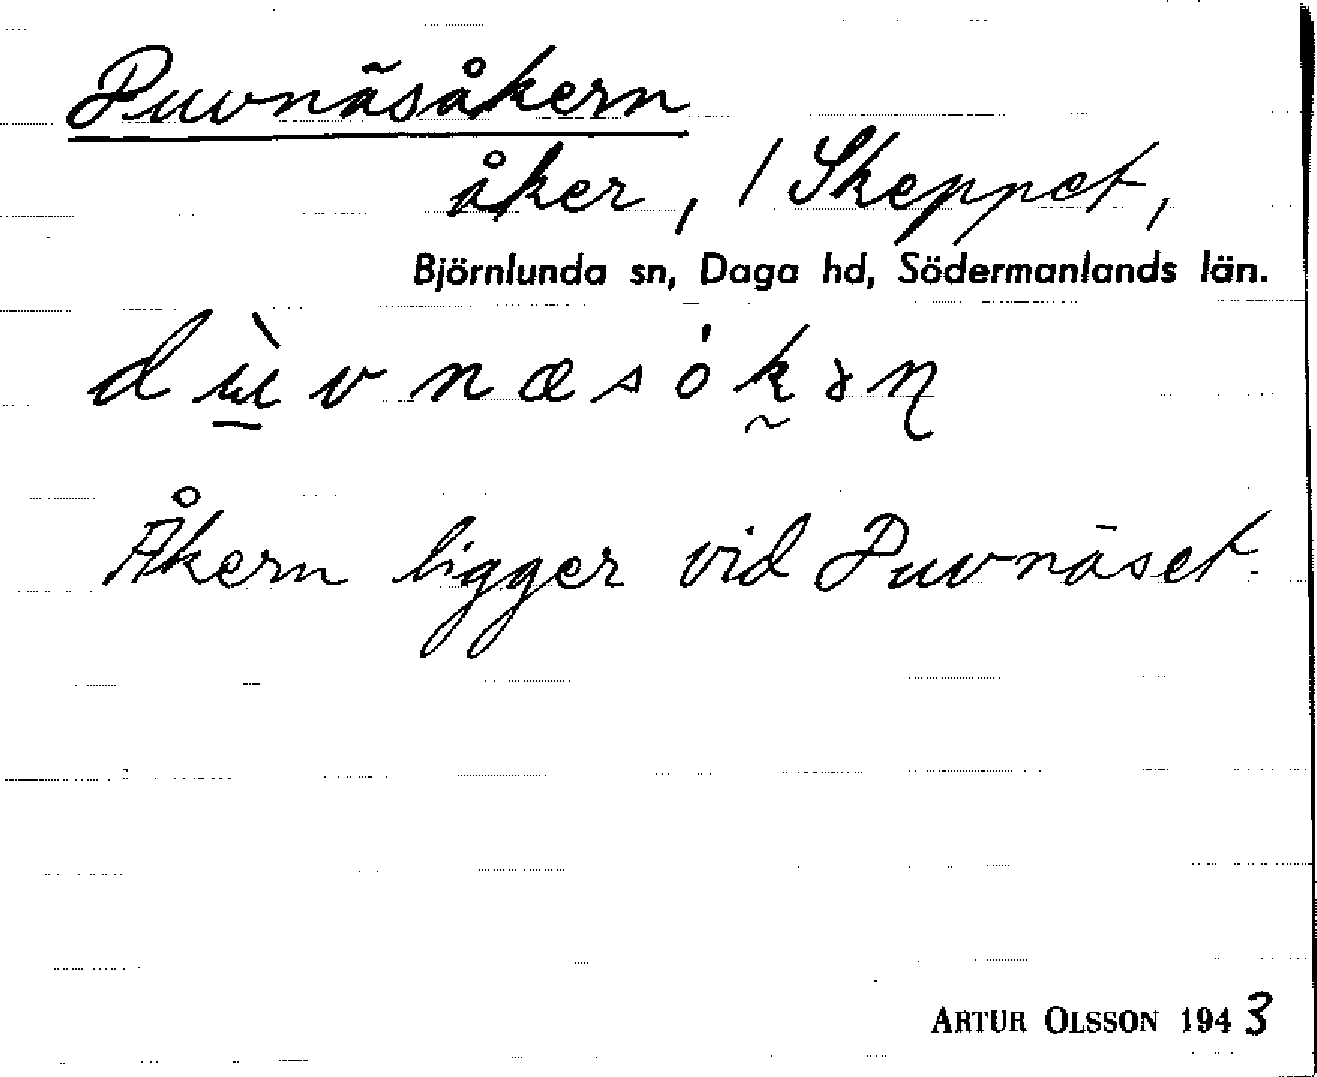 Duvnäsåkern
åker, / Skeppet,
Björnlunda sn, Daga hd, Södermanlands län.
Åkern ligger vid Duvnäset.
ARTUR OLSSON 1943